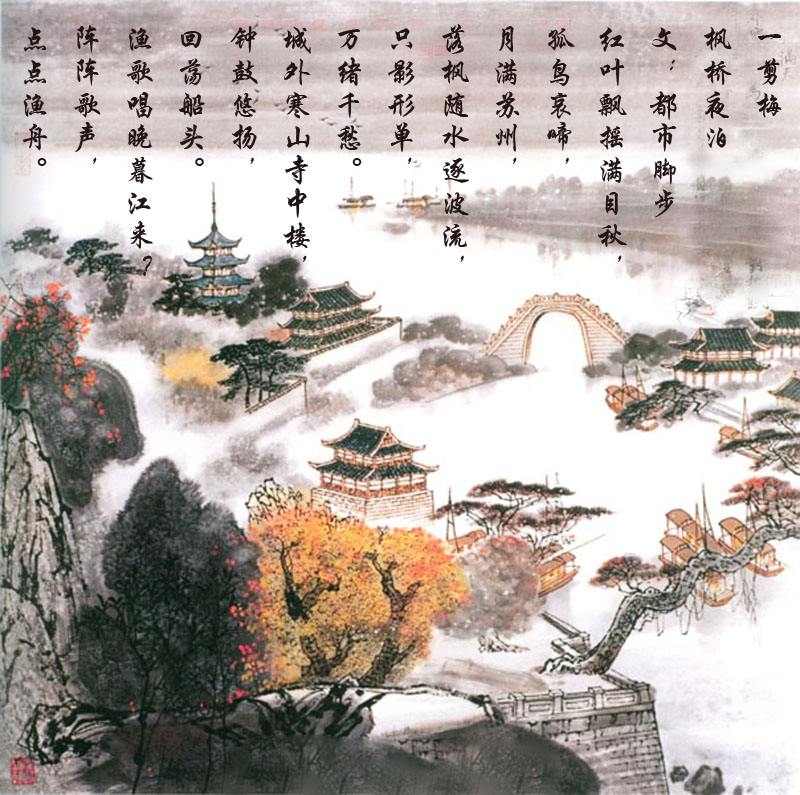 一剪梅
枫桥夜泊
文：都市脚步
红叶飘摇满目秋，
孤鸟哀啼，
月满苏州，
落枫随水逐波流，
只影形单，
万绪千愁。
城外寒山寺中楼，
钟鼓悠扬，
回荡船头。
渔歌唱晚暮江来？
阵阵歌声，
点点渔舟。